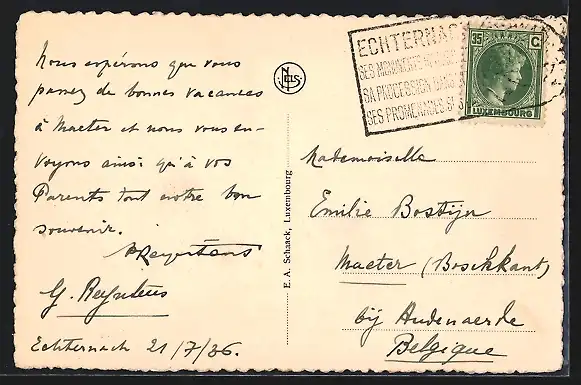 Nous espérons que vous
passez de bonnes vacances
à Maeter et nous vous en-
voyons ainsi qu'à vos
Parents tout notre bon
souvenir.
G. Reyntens
Echternach 21/7/36.
E. A. Schaack, Luxembourg
NELS
ECHTERNACH
SES MONUMENTS
SA PROCESSION
SES PROMENADES
35 C
LUXEMBOURG
Mademoiselle
Emilie Bostijn
Maeter (Boschkant)
bij Audenaerde
Belgique